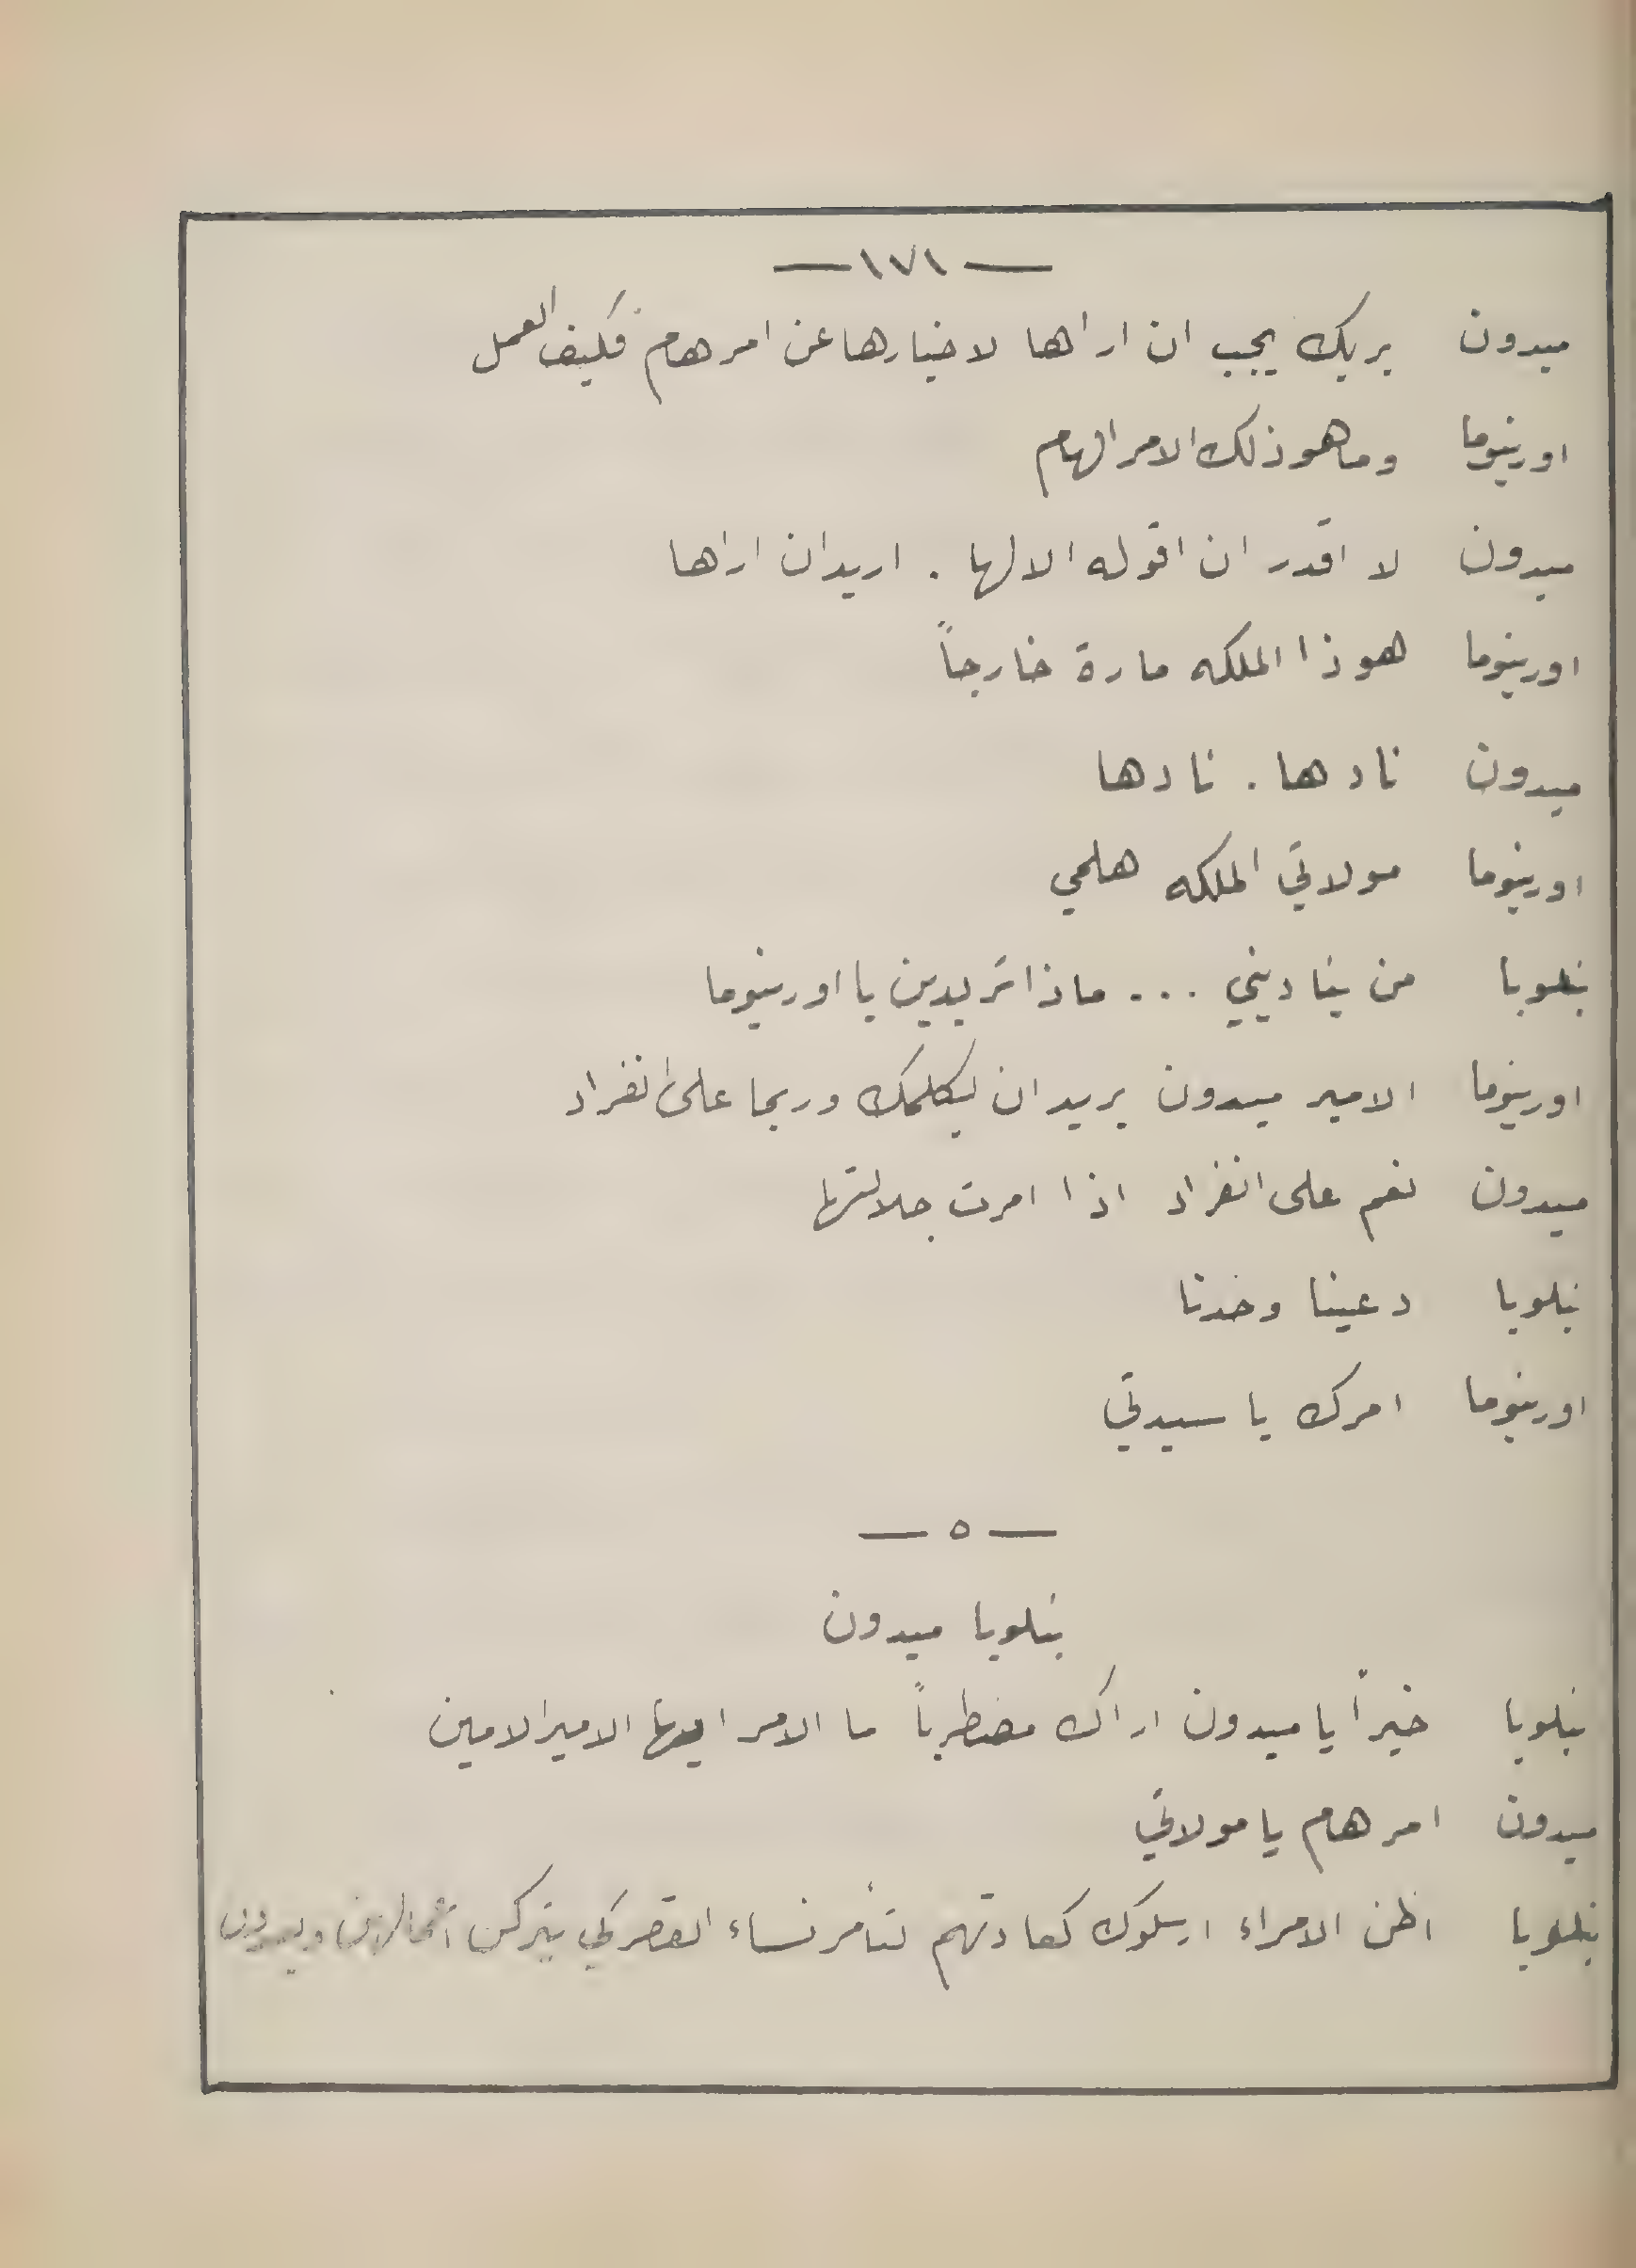 — ١٧١ —
ميدون بربك يجب ان اراها لاخبارها عن امر هام فكيف العمل
اورينوما وما هو ذلك الامر الهام
ميدون لا اقدر ان اقوله الا لها . اريد ان اراها
اورينوما هوذا الملكه مارة خارجاً
ميدون نادها . نادها
اورينوما مولاتي الملكه هلمي
بنلوبا من يناديني ... ماذا تريدين يا اورينوما
اورينوما الامير ميدون يريد ان يكلمك وربما على انفراد
ميدون نعم على انفراد اذا امرت جلالتها
بنلوبا دعينا وحدنا
اورينوما امرك يا سيدتي
— ٥ —
بنلوبا ميدون
بنلوبا خيراً يا ميدون اراك مضطرباً ما الامر ايها الامير الامين
ميدون امر هام يا مولاتي
بنلوبا اظن الامراء ارسلوك كعادتهم لتأمر نساء القصر كي يتركن